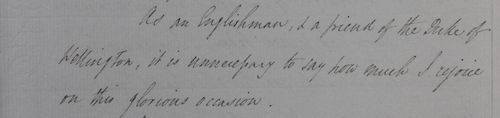 As an Englishman, & a friend of the Duke of
Wellington, it is unnecessary to say how much I rejoice
on this glorious occasion.